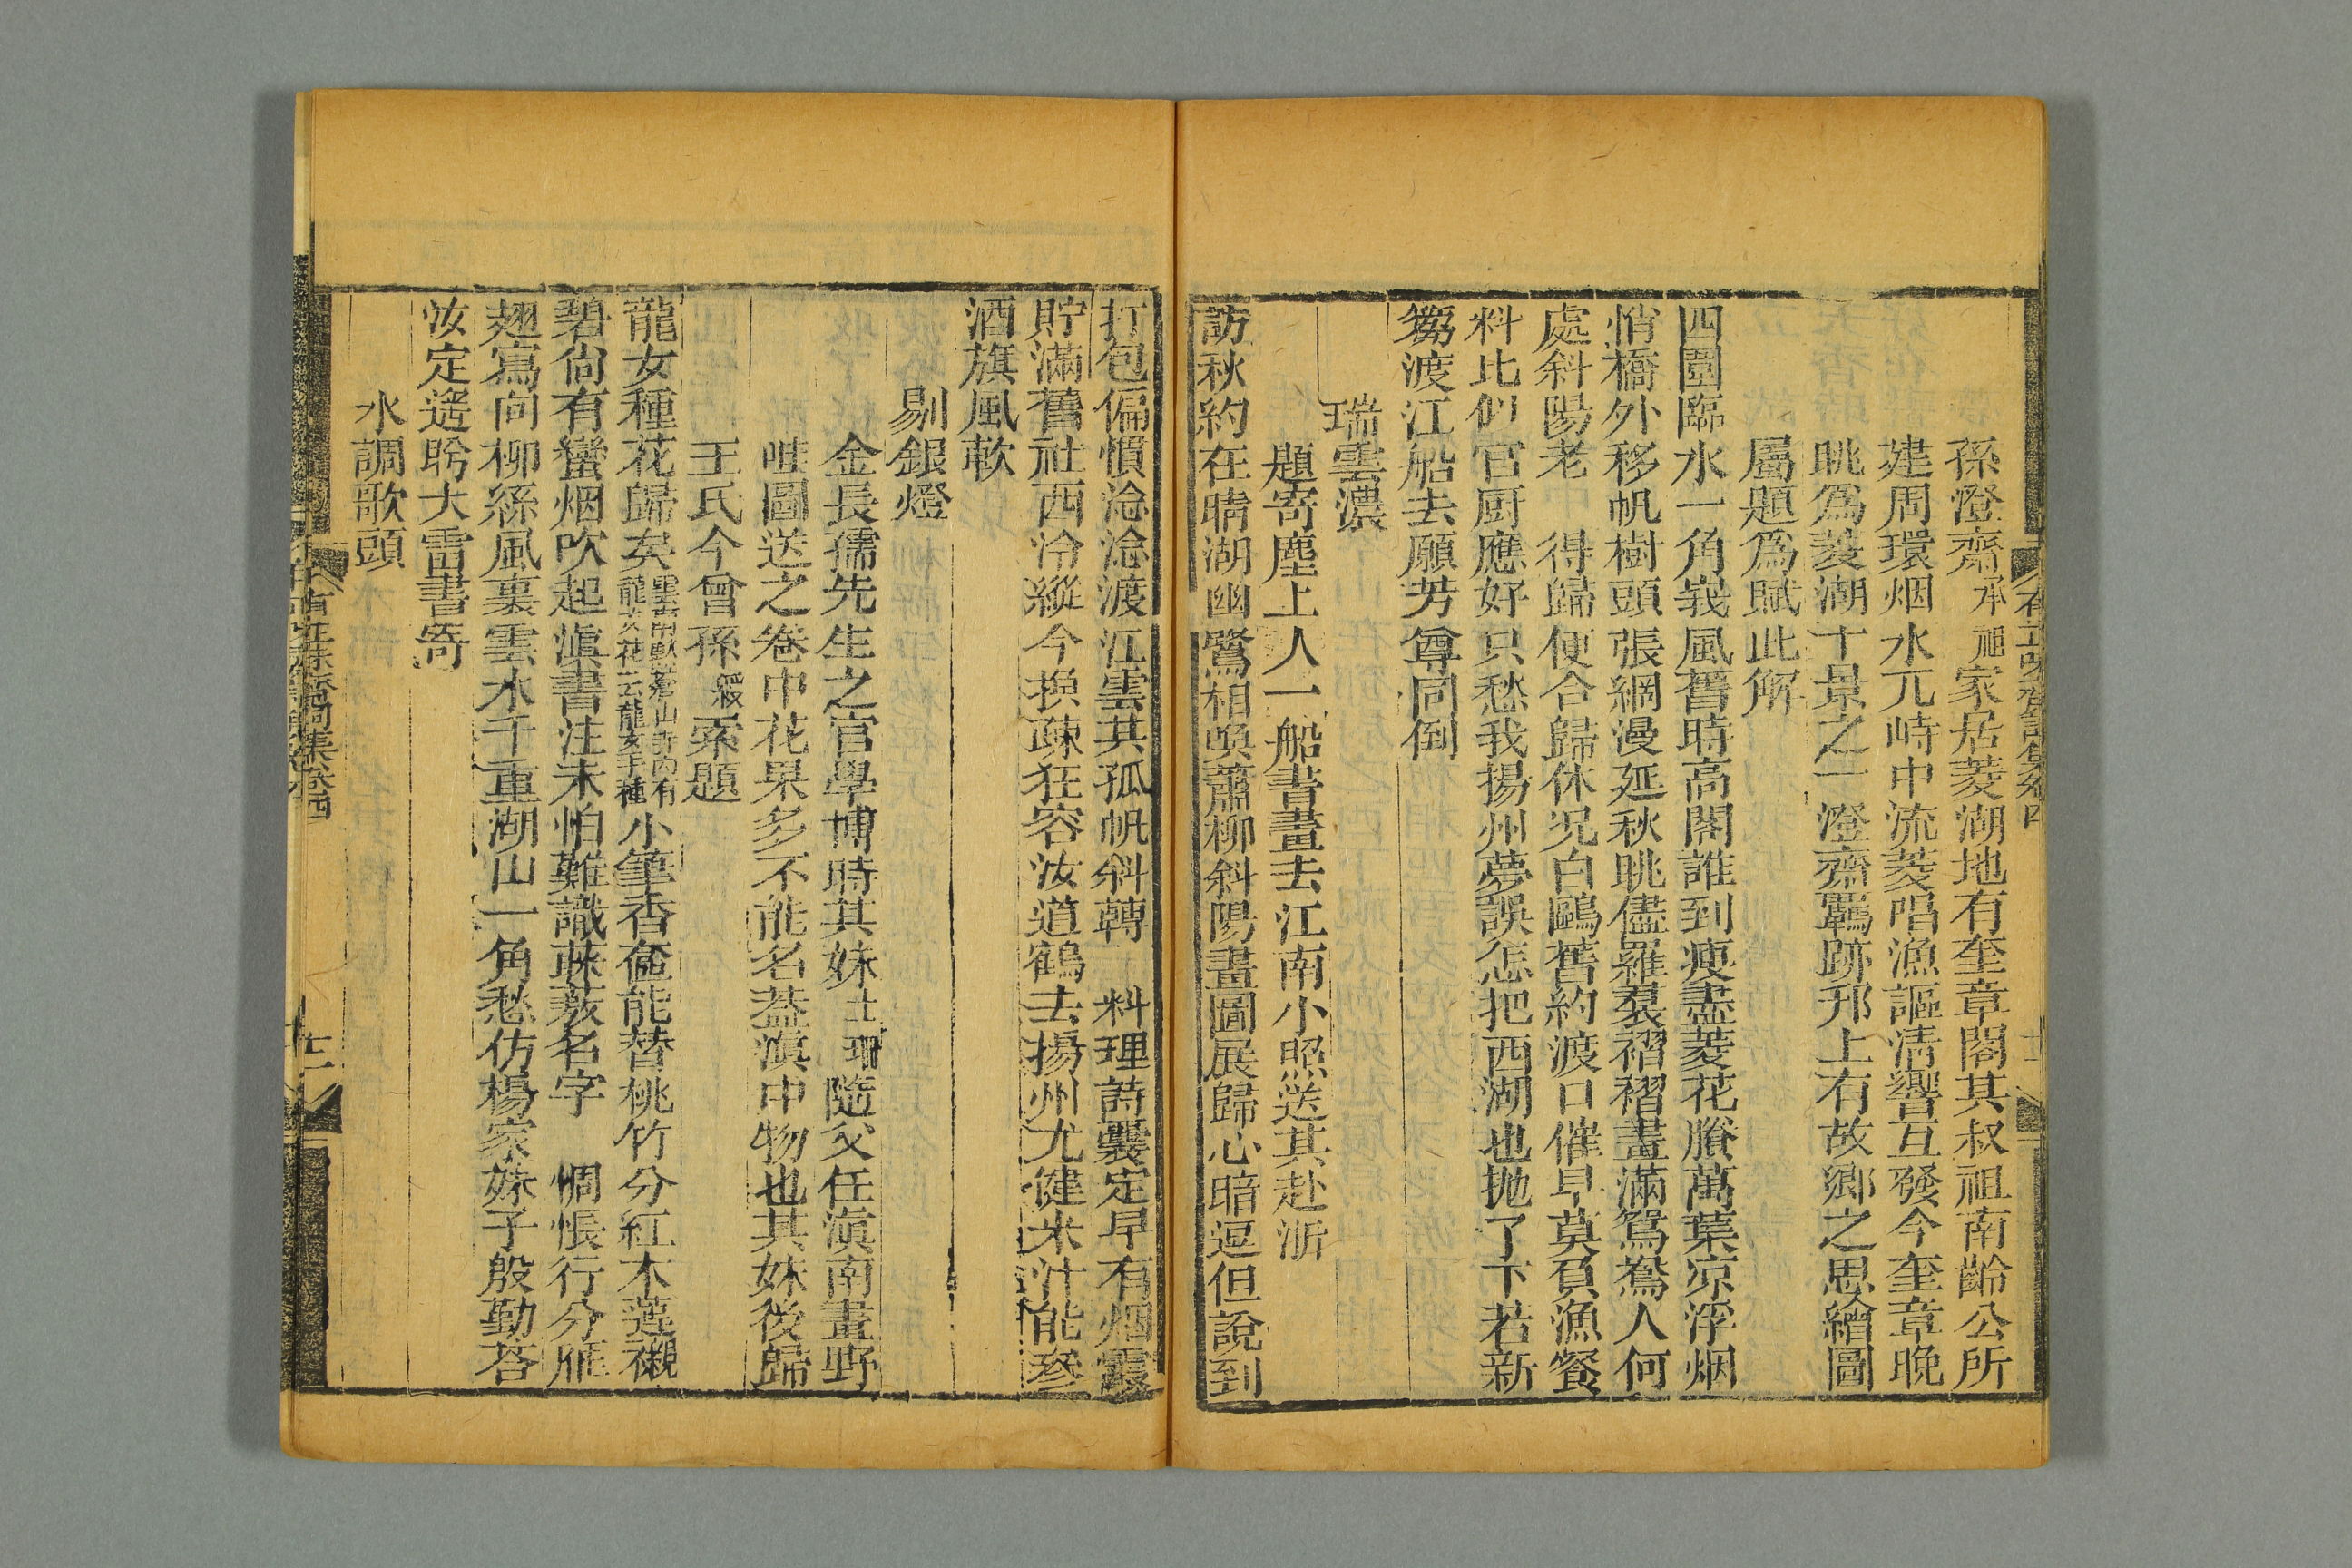 孫燈齋承祖家居菱湖地有奎章閣其叔祖南齡公所
建周環烟水兀峙中流菱唱漁謳清響互發今奎章晚
眺為菱湖十景之一澄齋羈跡邗上有故鄉之思繪圖
屬題為賦此解
四圍臨水一角峩風舊時高閣誰到瘦盡菱花賸萬葉凉浮烟
悄橋外移帆樹頭張網漫延秋眺儘羅裠褶褶畫滿鴛鴦人何
處斜陽老　得歸便合歸休况白鷗舊約渡口催早莫負漁餐
料比似官厨應好只愁我揚州夢誤怎把西湖也拋了下若新
篘渡江船去願芳尊同倒
瑞雲濃
題寄塵上人一船書畫去江南小照送其赴浙
訪秋約在晴湖幽鷺相喚蕭柳斜陽畫圖展歸心暗逗但說到
打包偏慣淰淰渡江雲其孤帆斜轉　料理詩囊定早有烟霞
貯滿舊社西泠縱今換疎狂容汝道鶴去揚州尤健米汁能參
酒旗風軟
剔銀燈
金長孺先生之官學博時其妹士珊隨父任滇南畫野
哇圖送之卷中花果多不能名蓋滇中物也其妹後歸
王氏今曾孫　索題
龍女種花歸矣雲南臥蒼山許內有龍女花云龍女手種小筆香奩能替桃竹分紅木蓮襯
碧尙有蠻烟吹起滇書注未怕難識蔬蔌名字　惆悵行分雁
翅寫向柳絲風裏雲水千重湖山一角愁仿楊家妹子殷勤荅
汝定遙盻大雷書寄
水調歌頭
有正味齋詞集卷四
十二